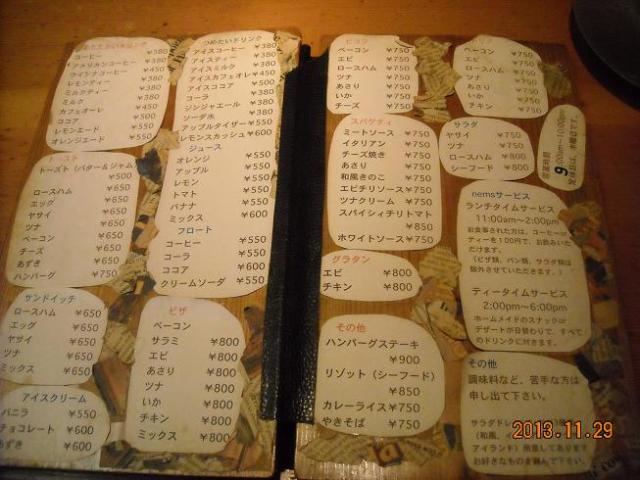 あたたかいドリンク
コーヒー ¥380
アメリカンコーヒー ¥380
ウインナコーヒー ¥450
レモンティー ¥380
ミルクティー ¥380
ミルク ¥380
カフェオーレ ¥450
ココア ¥500
レモンエード ¥550
オレンジエード ¥550
トースト
トースト（バター＆ジャム
¥500
ロースハム ¥650
エッグ ¥650
ヤサイ ¥650
ツナ ¥650
ベーコン ¥650
チーズ ¥650
あずき ¥650
ハンバーグ ¥750
サンドイッチ
ロースハム ¥650
エッグ ¥650
ヤサイ ¥650
ツナ ¥650
ミックス ¥650
アイスクリーム
バニラ ¥550
チョコレート ¥600
あずき ¥600
つめたいドリンク
アイスコーヒー ¥380
アイスティー ¥380
アイスミルク ¥380
アイスカフェオレ ¥450
アイスココア ¥500
コーラ ¥380
ジンジャエール ¥380
ソーダ水 ¥380
アップルタイザー ¥550
レモンスカッシュ ¥600
ジュース
オレンジ ¥550
アップル ¥550
レモン ¥550
トマト ¥550
バナナ ¥550
ミックス ¥600
フロート
コーヒー ¥550
コーラ ¥550
ココア ¥600
クリームソーダ ¥550
ピザ
ベーコン
サラミ ¥800
エビ ¥800
あさり ¥800
ツナ ¥800
いか ¥800
チキン ¥800
ミックス ¥800
ピラフ
ベーコン ¥750
エビ ¥750
ロースハム ¥750
ツナ ¥750
あさり ¥750
いか ¥750
チーズ ¥750
スパゲティ
ミートソース ¥750
イタリアン ¥750
チーズ焼き ¥750
あさり ¥750
和風きのこ ¥750
エビチリソース ¥750
ツナクリーム ¥750
スパイシィチリトマト
¥850
ホワイトソース ¥750
グラタン
エビ ¥800
チキン ¥800
その他
ハンバーグステーキ
¥900
リゾット（シーフード）
¥850
カレーライス ¥750
やきそば ¥750
ベーコン ¥750
エビ ¥750
ロースハム ¥750
ツナ ¥750
あさり ¥750
いか ¥750
チキン ¥750
サラダ
ヤサイ ¥750
ツナ ¥750
ロースハム ¥800
シーフード ¥800
営業時間
9:00am〜10:00pm
定休日は、水曜です。
nemsサービス
ランチタイムサービス
11:00am〜2:00pm
お食事された方は、コーヒー
ティーを100円で、お飲みいた
だけます。
（ピザ類、パン類、サラダ類は
除外させていただきます。）
ティータイムサービス
2:00pm〜6:00pm
ホームメイドのスナック
デザートが日替わりで、すべて
のドリンクに付きます。
その他
調味料など、苦手な方は
申し出て下さい。
サラダドレ
（和風、
アイランド）用意してあります
お好きなものを選んで下さい。
2013.11.29